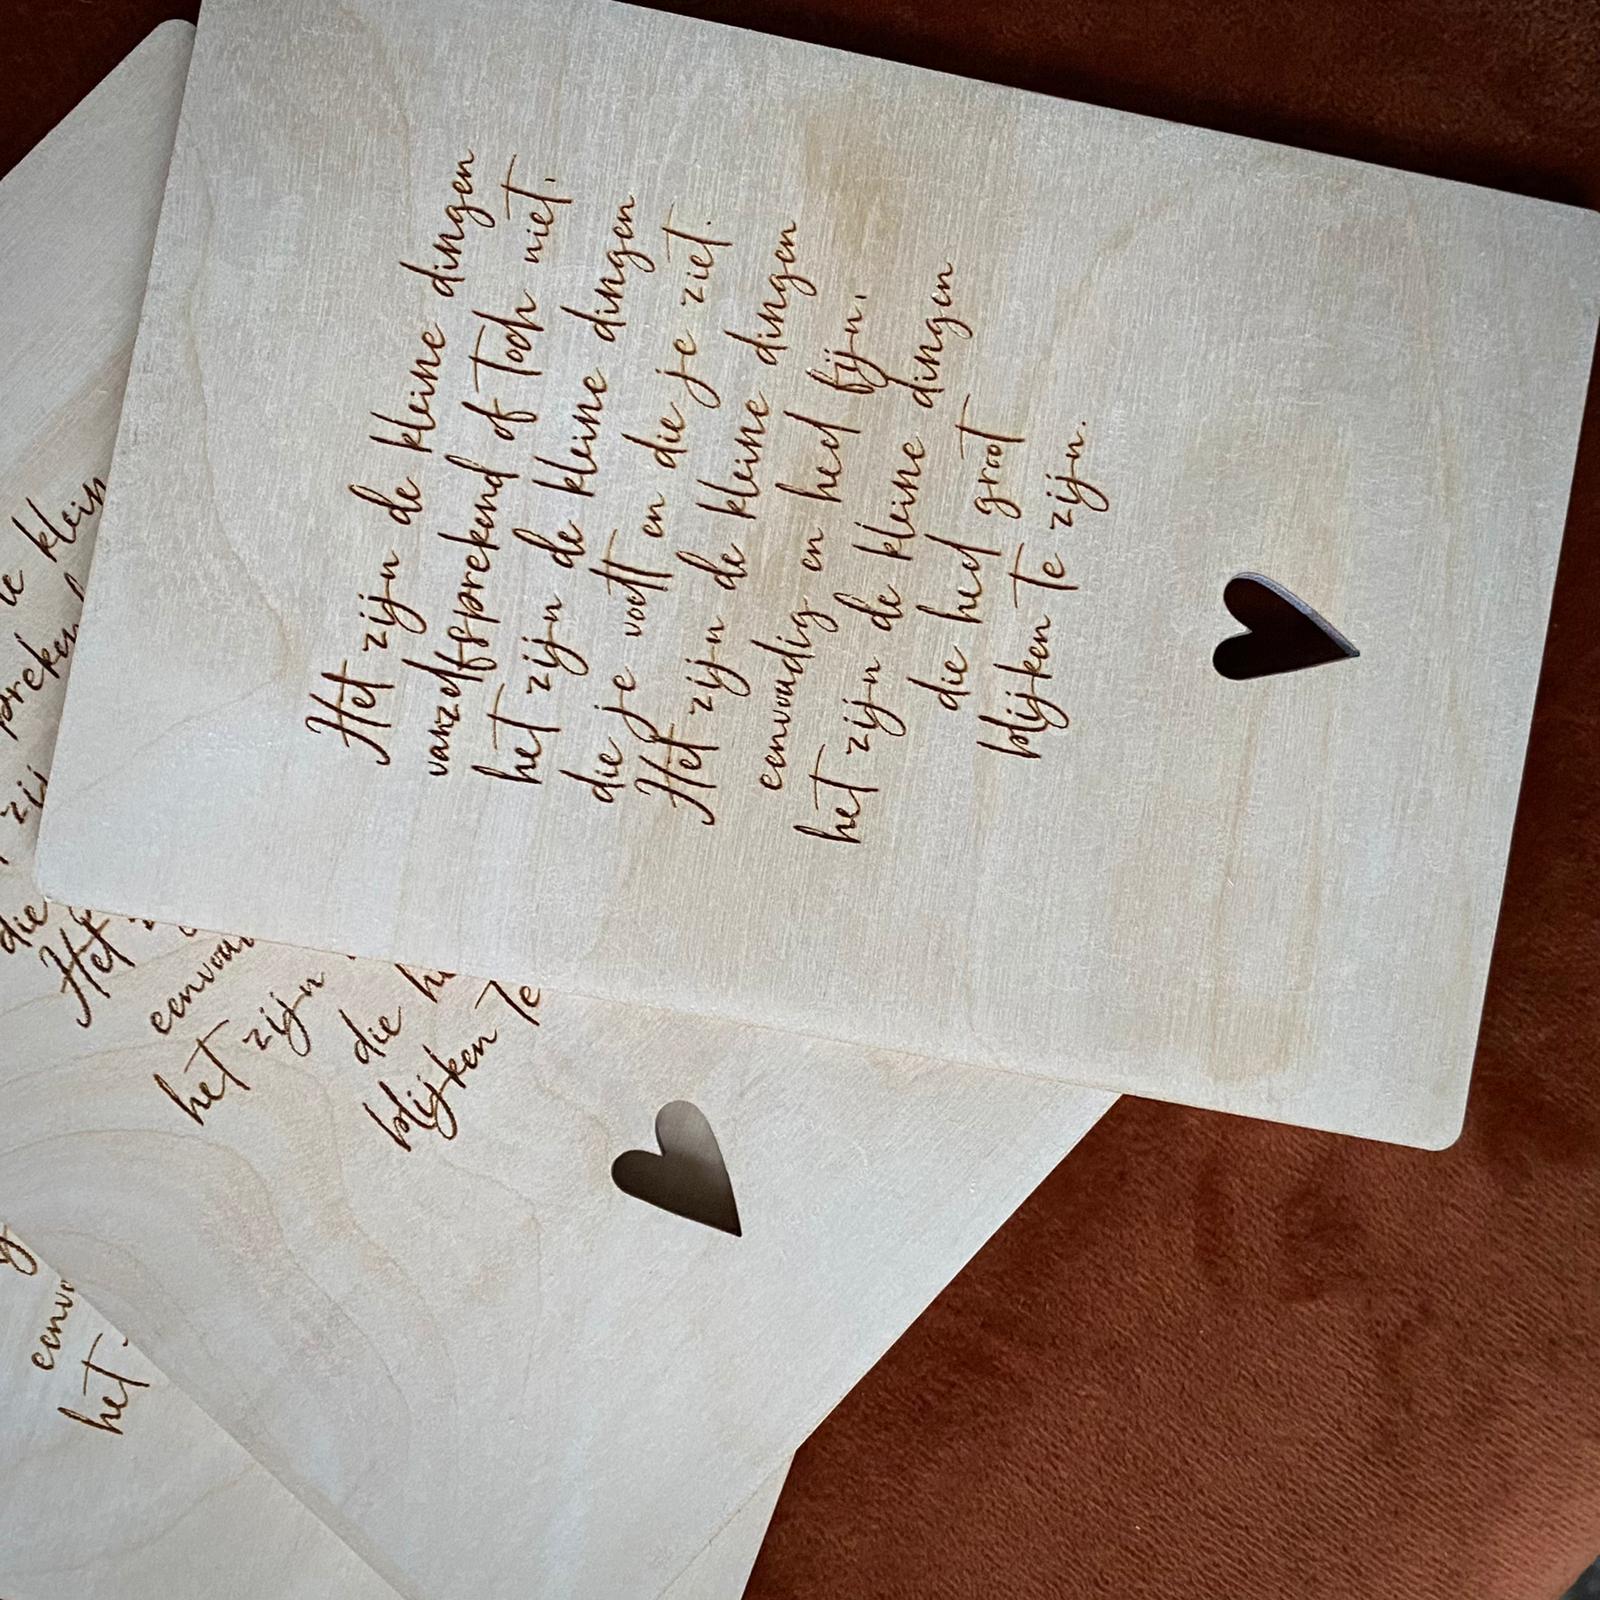 Het zijn de kleine dingen
vanzelfsprekend of toch niet,
het zijn de kleine dingen
die je voelt en die je ziet.
Het zijn de kleine dingen
eenvoudig en heel fijn,
het zijn de kleine dingen
die heel groot
blijken te zijn.
klein
zij
die
Het
eenvou
het zijn
die he
blijken te
eenvo
het